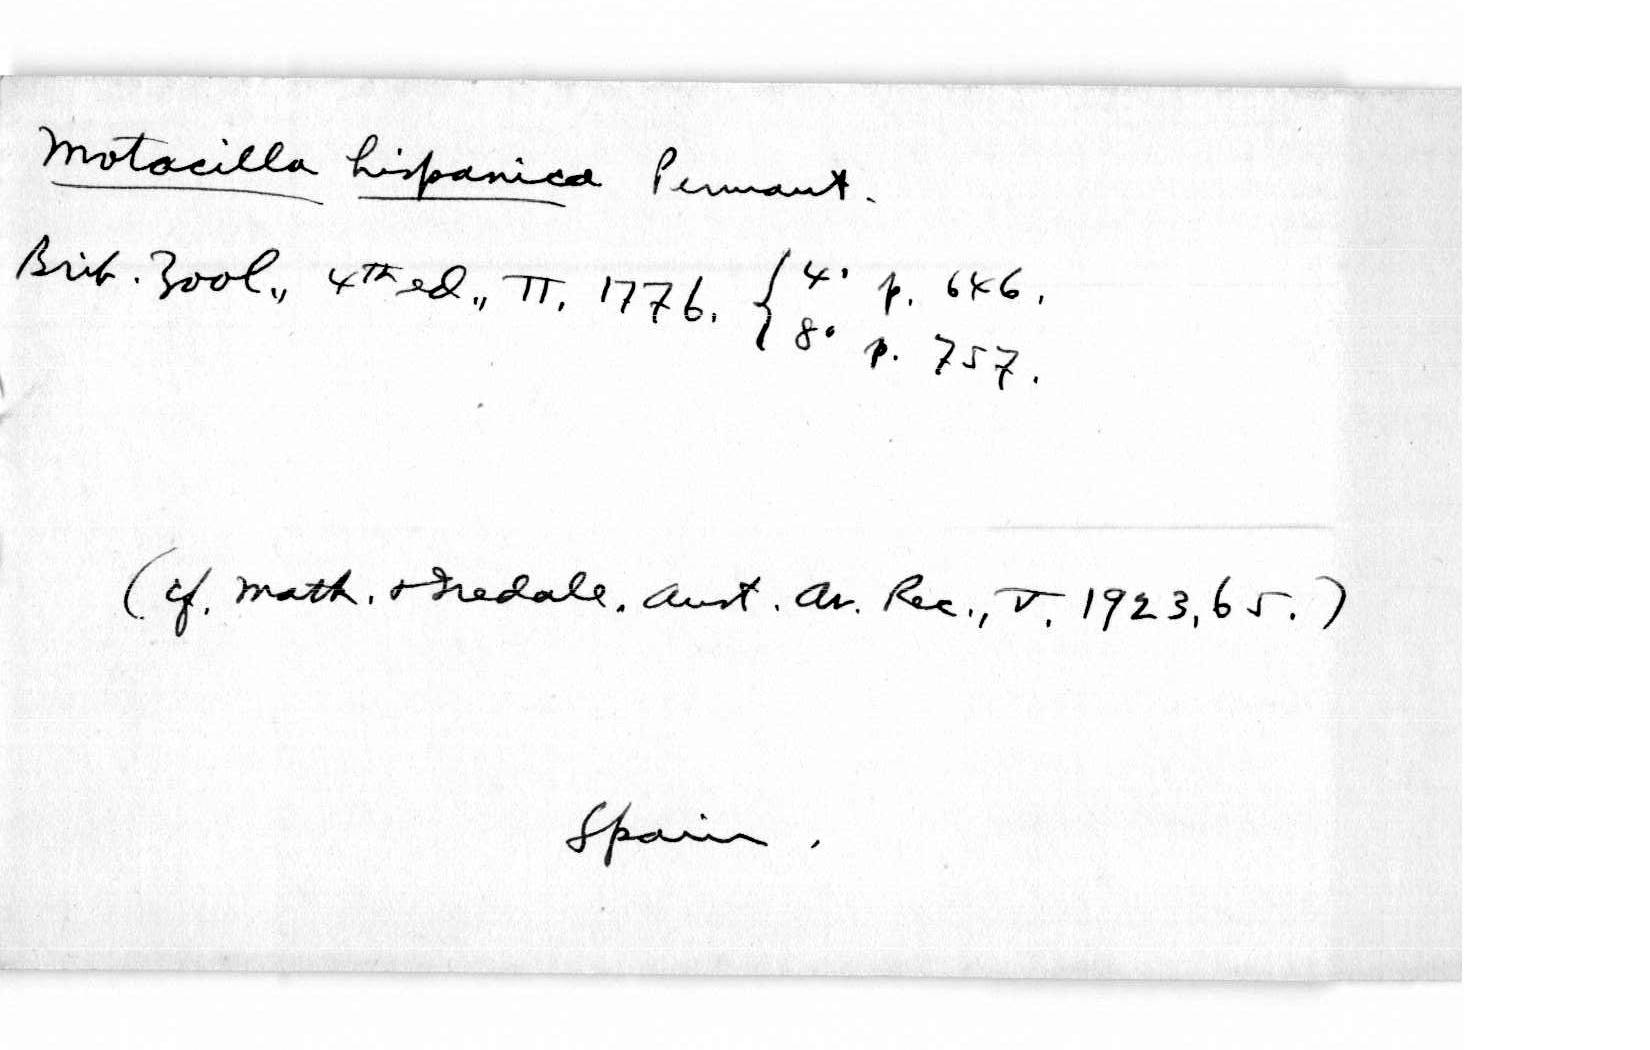 Motacilla hispanica Pennant.
Brit. Zool., 4th ed., II. 1776. { 4° p. 646.
8° p. 757.
(cf. Math. & Iredale. Aust. Av. Rec., V. 1923, 65.)
Spain.